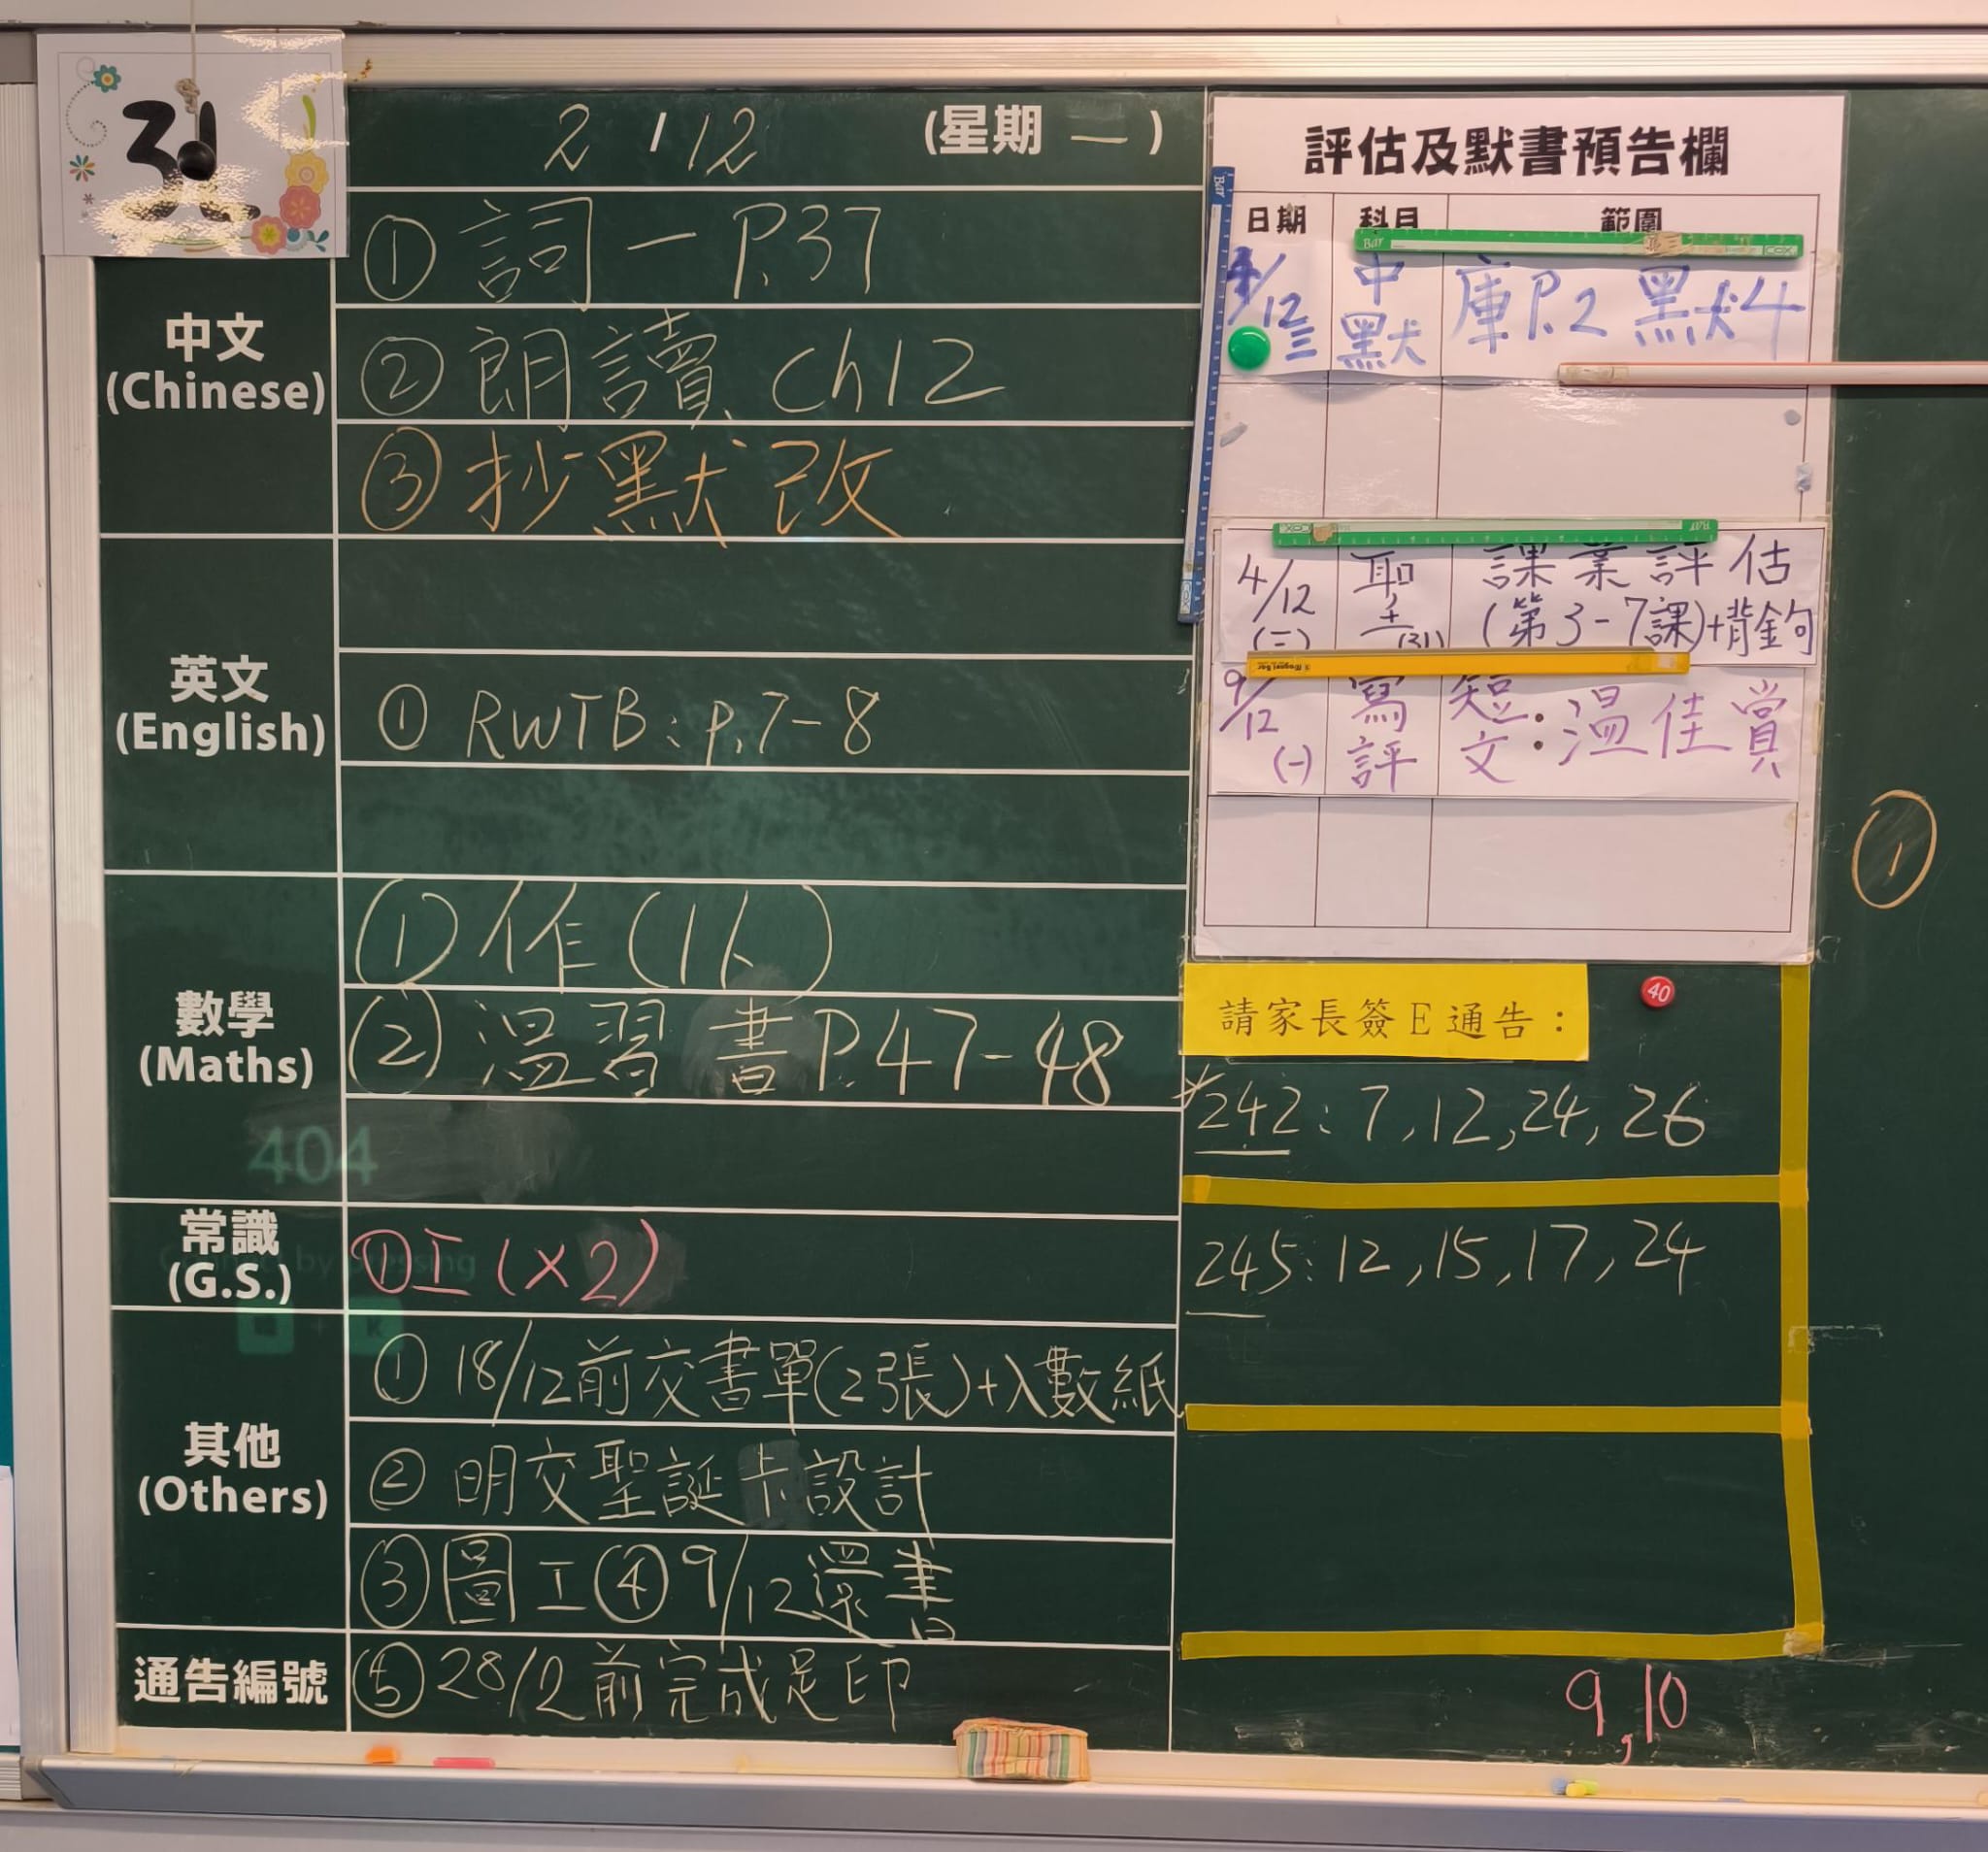 3L
2 / 12 (星期 一 )
中文
(Chinese)
① 詞一 P.37
② 朗讀 Ch12
③ 抄默改
英文
(English)
① RWTB : p.7-8
數學
(Maths)
① 作(1下)
② 溫習 書P.47-48
404
常識
(G.S.)
①工(×2)
其他
(Others)
① 18/12前交書單(2張)+入數紙
② 明交聖誕卡設計
③ 圖工 ④ 9/12還書
通告編號
⑤ 28/2前完成足印
評估及默書預告欄
日期 科目 範圍
4/12 三 中默 庫P.2 默4
4/12 聖 (31) 課業評估
(第3-7課)+背金句
9/12 (一) 寫評 短文:溫佳賞
①
請家長簽E通告:
40
*242 : 7, 12, 24, 26
245 : 12, 15, 17, 24
9, 10